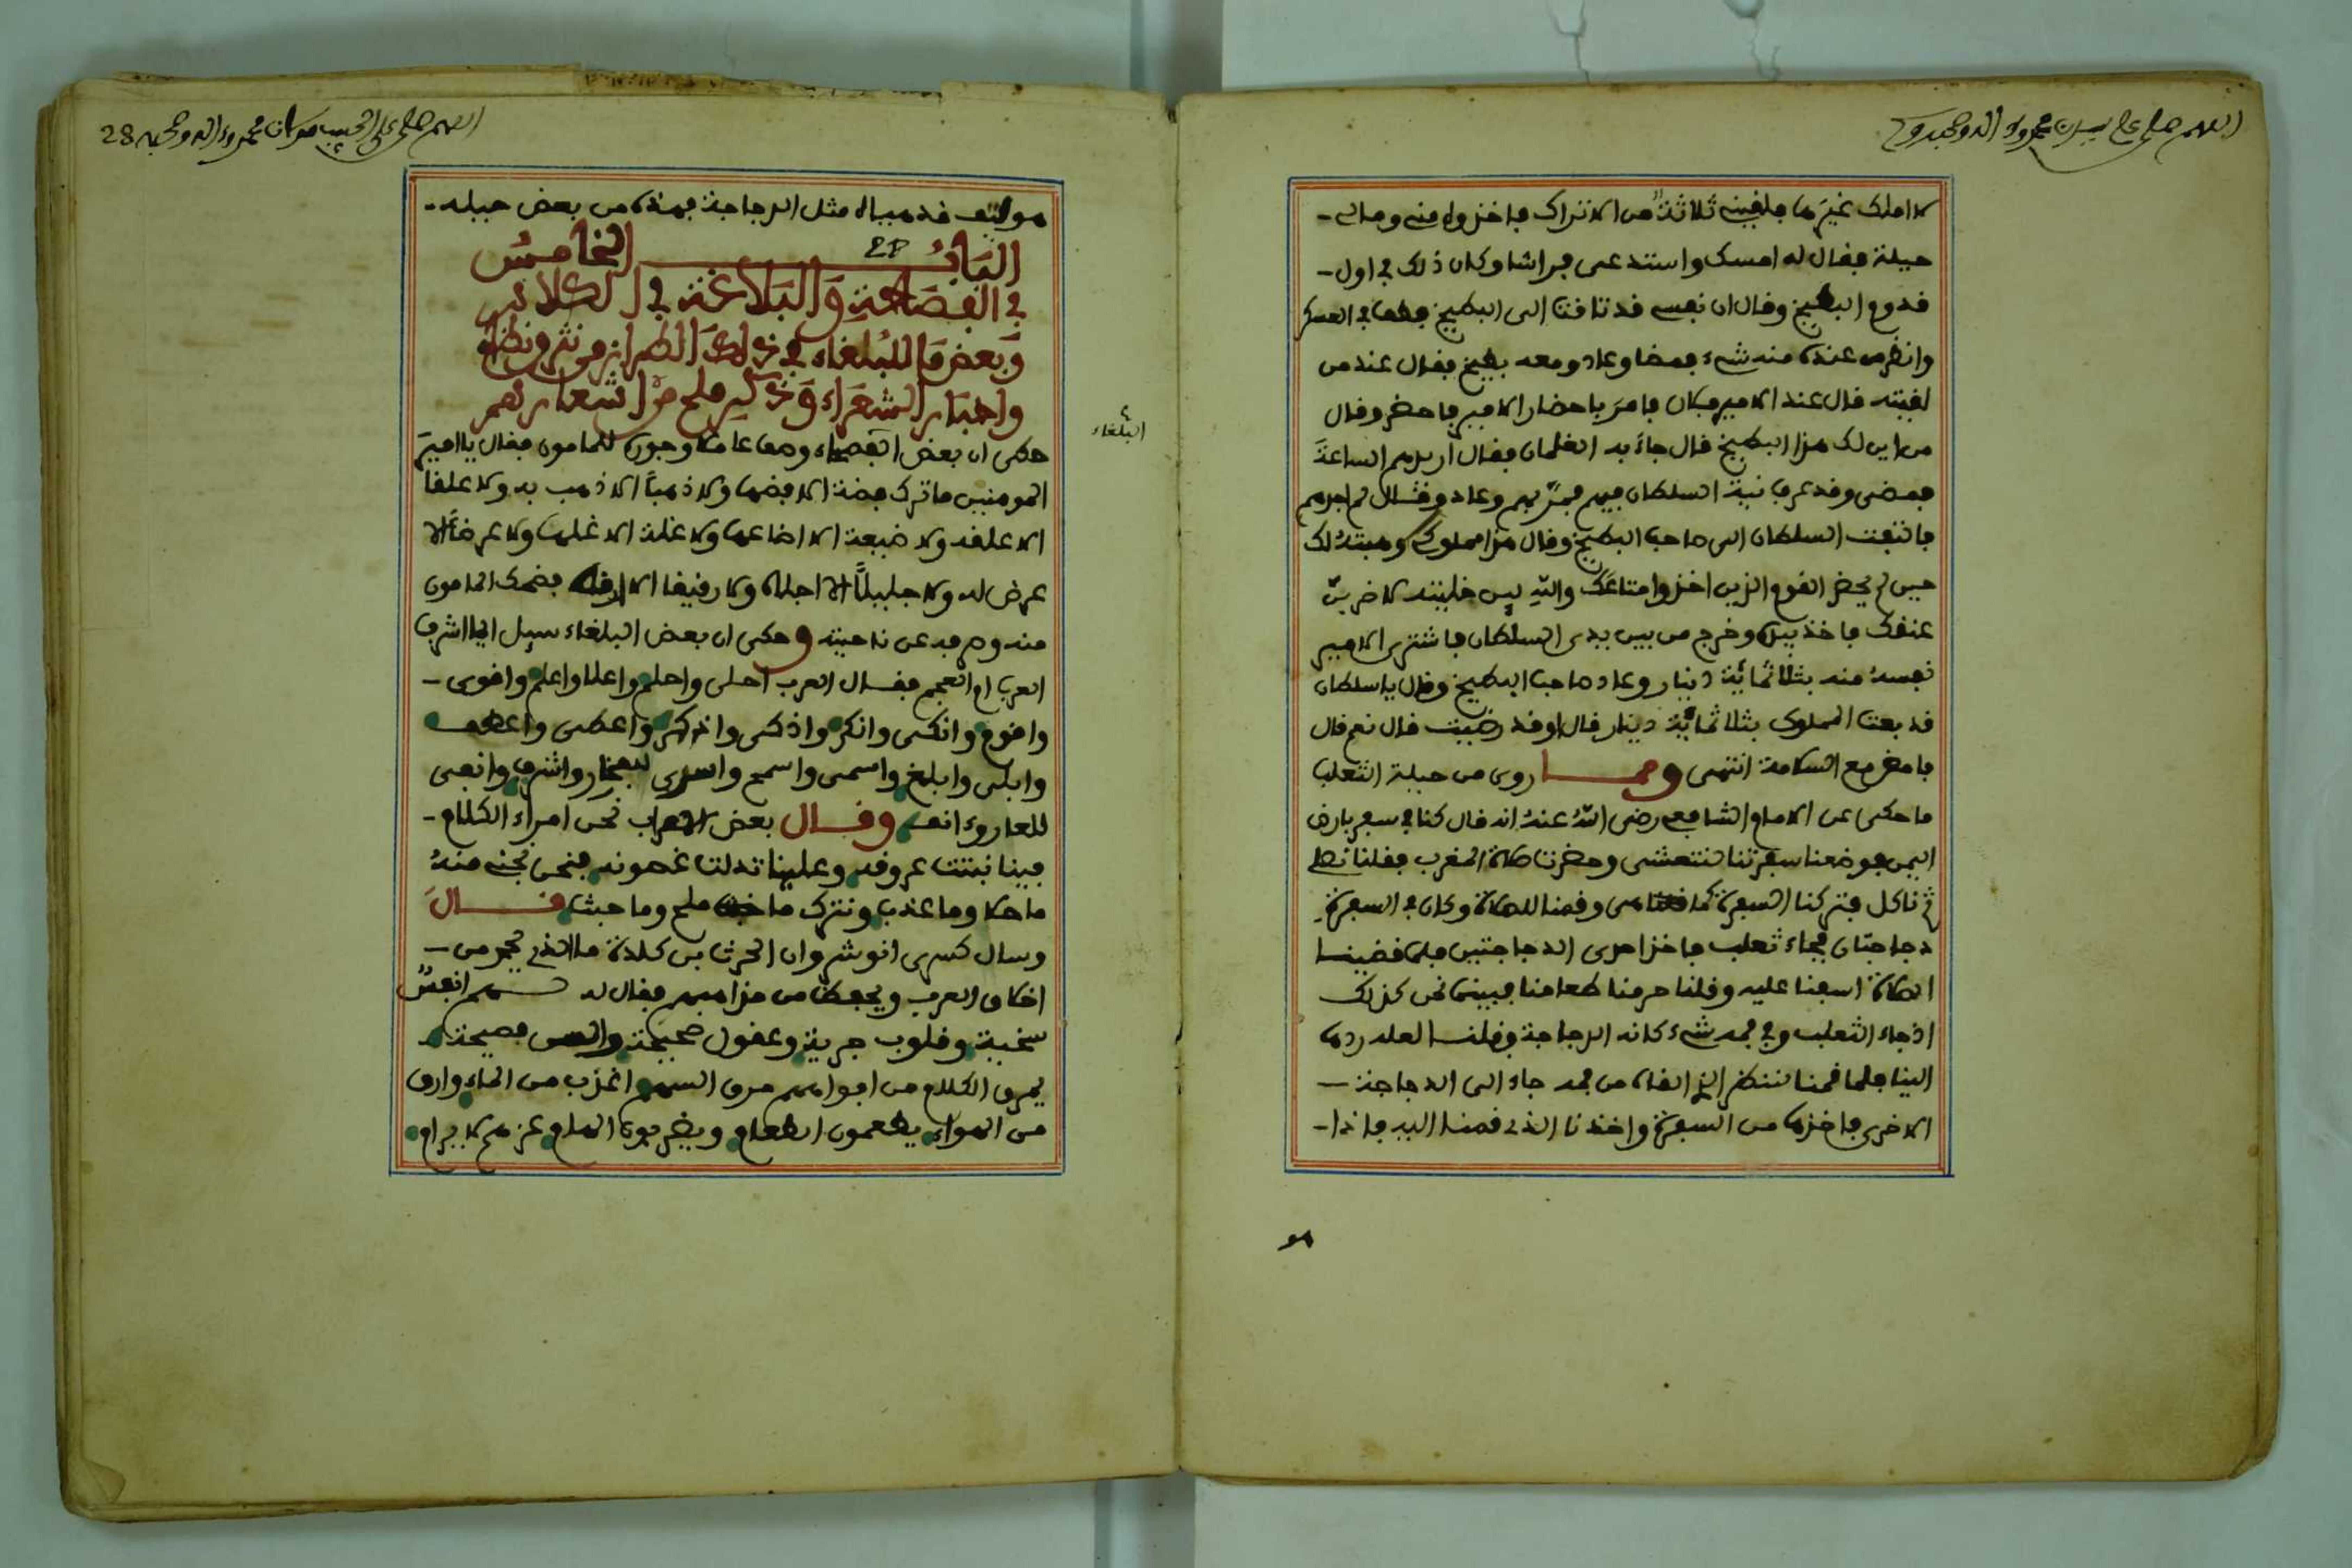 اللهم صل على سيدنا محمد وءاله وصحبه وسلم
لا املك غيرها فلقيني ثلاثة من الاتراك فاخذوه مني ومالي
حيلة فقال له امسك واستدعى فراشا وكان ذلك في اول
قدوم البطيخ وقال ان نفسي قد تاقت الى البطيخ فطف في العسكر
وانظر من عنده منه شيء فمضا وعاد ومعه بطيخ فقال عند من
لقيته قال عند الامير فلان فامر باحضار الامير فاحضر وقال
من اين لك هذا البطيخ قال جاء به الغلمان فقال اريدهم الساعة
فمضى وقد عرف نية السلطان فيهم فهربهم وعاد وقال لم اجدهم
فالتفت السلطان الى صاحب البطيخ وقال هذا مملوكي وهبته لك
حين لم يحضر القوم الذين اخذوا متاعك والله لين خليته لاضربن
عنقك فاخذ بيده وخرج من بين يدي السلطان فاشترى الامير
نفسه منه بثلاثمائة دينار وعاد صاحب البطيخ وقال يا سلطان
قد بعت المملوك بثلاثمائة دينار قال او قد رضيت قال نعم قال
فامض مع السلامة انتهى ومما روي من حيلة الثعلب
ما حكى عن الامام الشافعي رضى الله عنه انه قال كنا في سفر بارض
اليمن فوضعنا سفرتنا لنتعشى وحضرت صلاة المغرب فقلنا نصلي
ثم ناكل فتركنا السفرة كما هي وقمنا للصلاة وكان في السفرة
دجاجتان فجاء ثعلب فاخذ احدى الدجاجتين فلما قضينا
الصلاة اسفنا عليه وقلنا حرمنا طعامنا فبينما نحن كذلك
اذ جاء الثعلب وفي فمه شيء كانه الدجاجة وقلنا لعله ردها
الينا فلما قمنا لننظر الذي القاه من فمه جاء الى الدجاجة
الاخرى فاخذها من السفرة واخذنا الذي قمنا اليه فاذا
هو
اللهم صل على الحبيب مولانا محمد وءاله وصحبه 28
هو ليف قد هياه مثل الدجاجة فهذه من بعض حيله
الباب الخامس
في الفصاحة والبلاغة في الكلام
وبعض ما للبلغاء في ذلك الطراز من نثر ونظام
واخبار الشعراء وذكر ملح من اشعارهم
البلغاء
حكى ان بعض الفصحاء وصف عاملا وجوره للمامون فقال يا امير
المومنين ما ترك فضة الا فضها ولا ذهبا الا ذهب به ولا علقا
الا علقه ولا ضيعة الا اضاعها ولا غلة الا غلها ولا عرضا الا
عرض له ولا جليلا الا اجلاه ولا رقيقا الا ارقه فضحك المامون
منه وصرفه عن ناحيته وحكى ان بعض البلغاء سيل ايما اشرف
العرب ام العجم فقال العرب احلى واحلم واعلا واعلم واقوى
واقوم وانكى وانكر واذكى واذكر واعطى واعطف
وابلى وابلغ واسمى واسمع واسرى للفخار واشرف وانفى
للعار وءانف وقال بعض الاعراب نحن امراء الكلام
فينا نبتت عروقه وعلينا تدلت غصونه فنحن نجني منه
ما حلا وما عذب ونترك ما ملح وما خبث قال
وسال كسرى انوشروان الحرث بن كلدة ما الذي يحمد من
اخلاق العرب ويحفظ من مذاهبهم فقال له لهم انفس
سخية وقلوب جرية وعقول صحيحة والسن فصيحة
يمرق الكلام من افواههم مرق السهم اعذب من الماء وارق
من الهواء يطعمون الطعام ويضربون الهام عزهم لا يرام